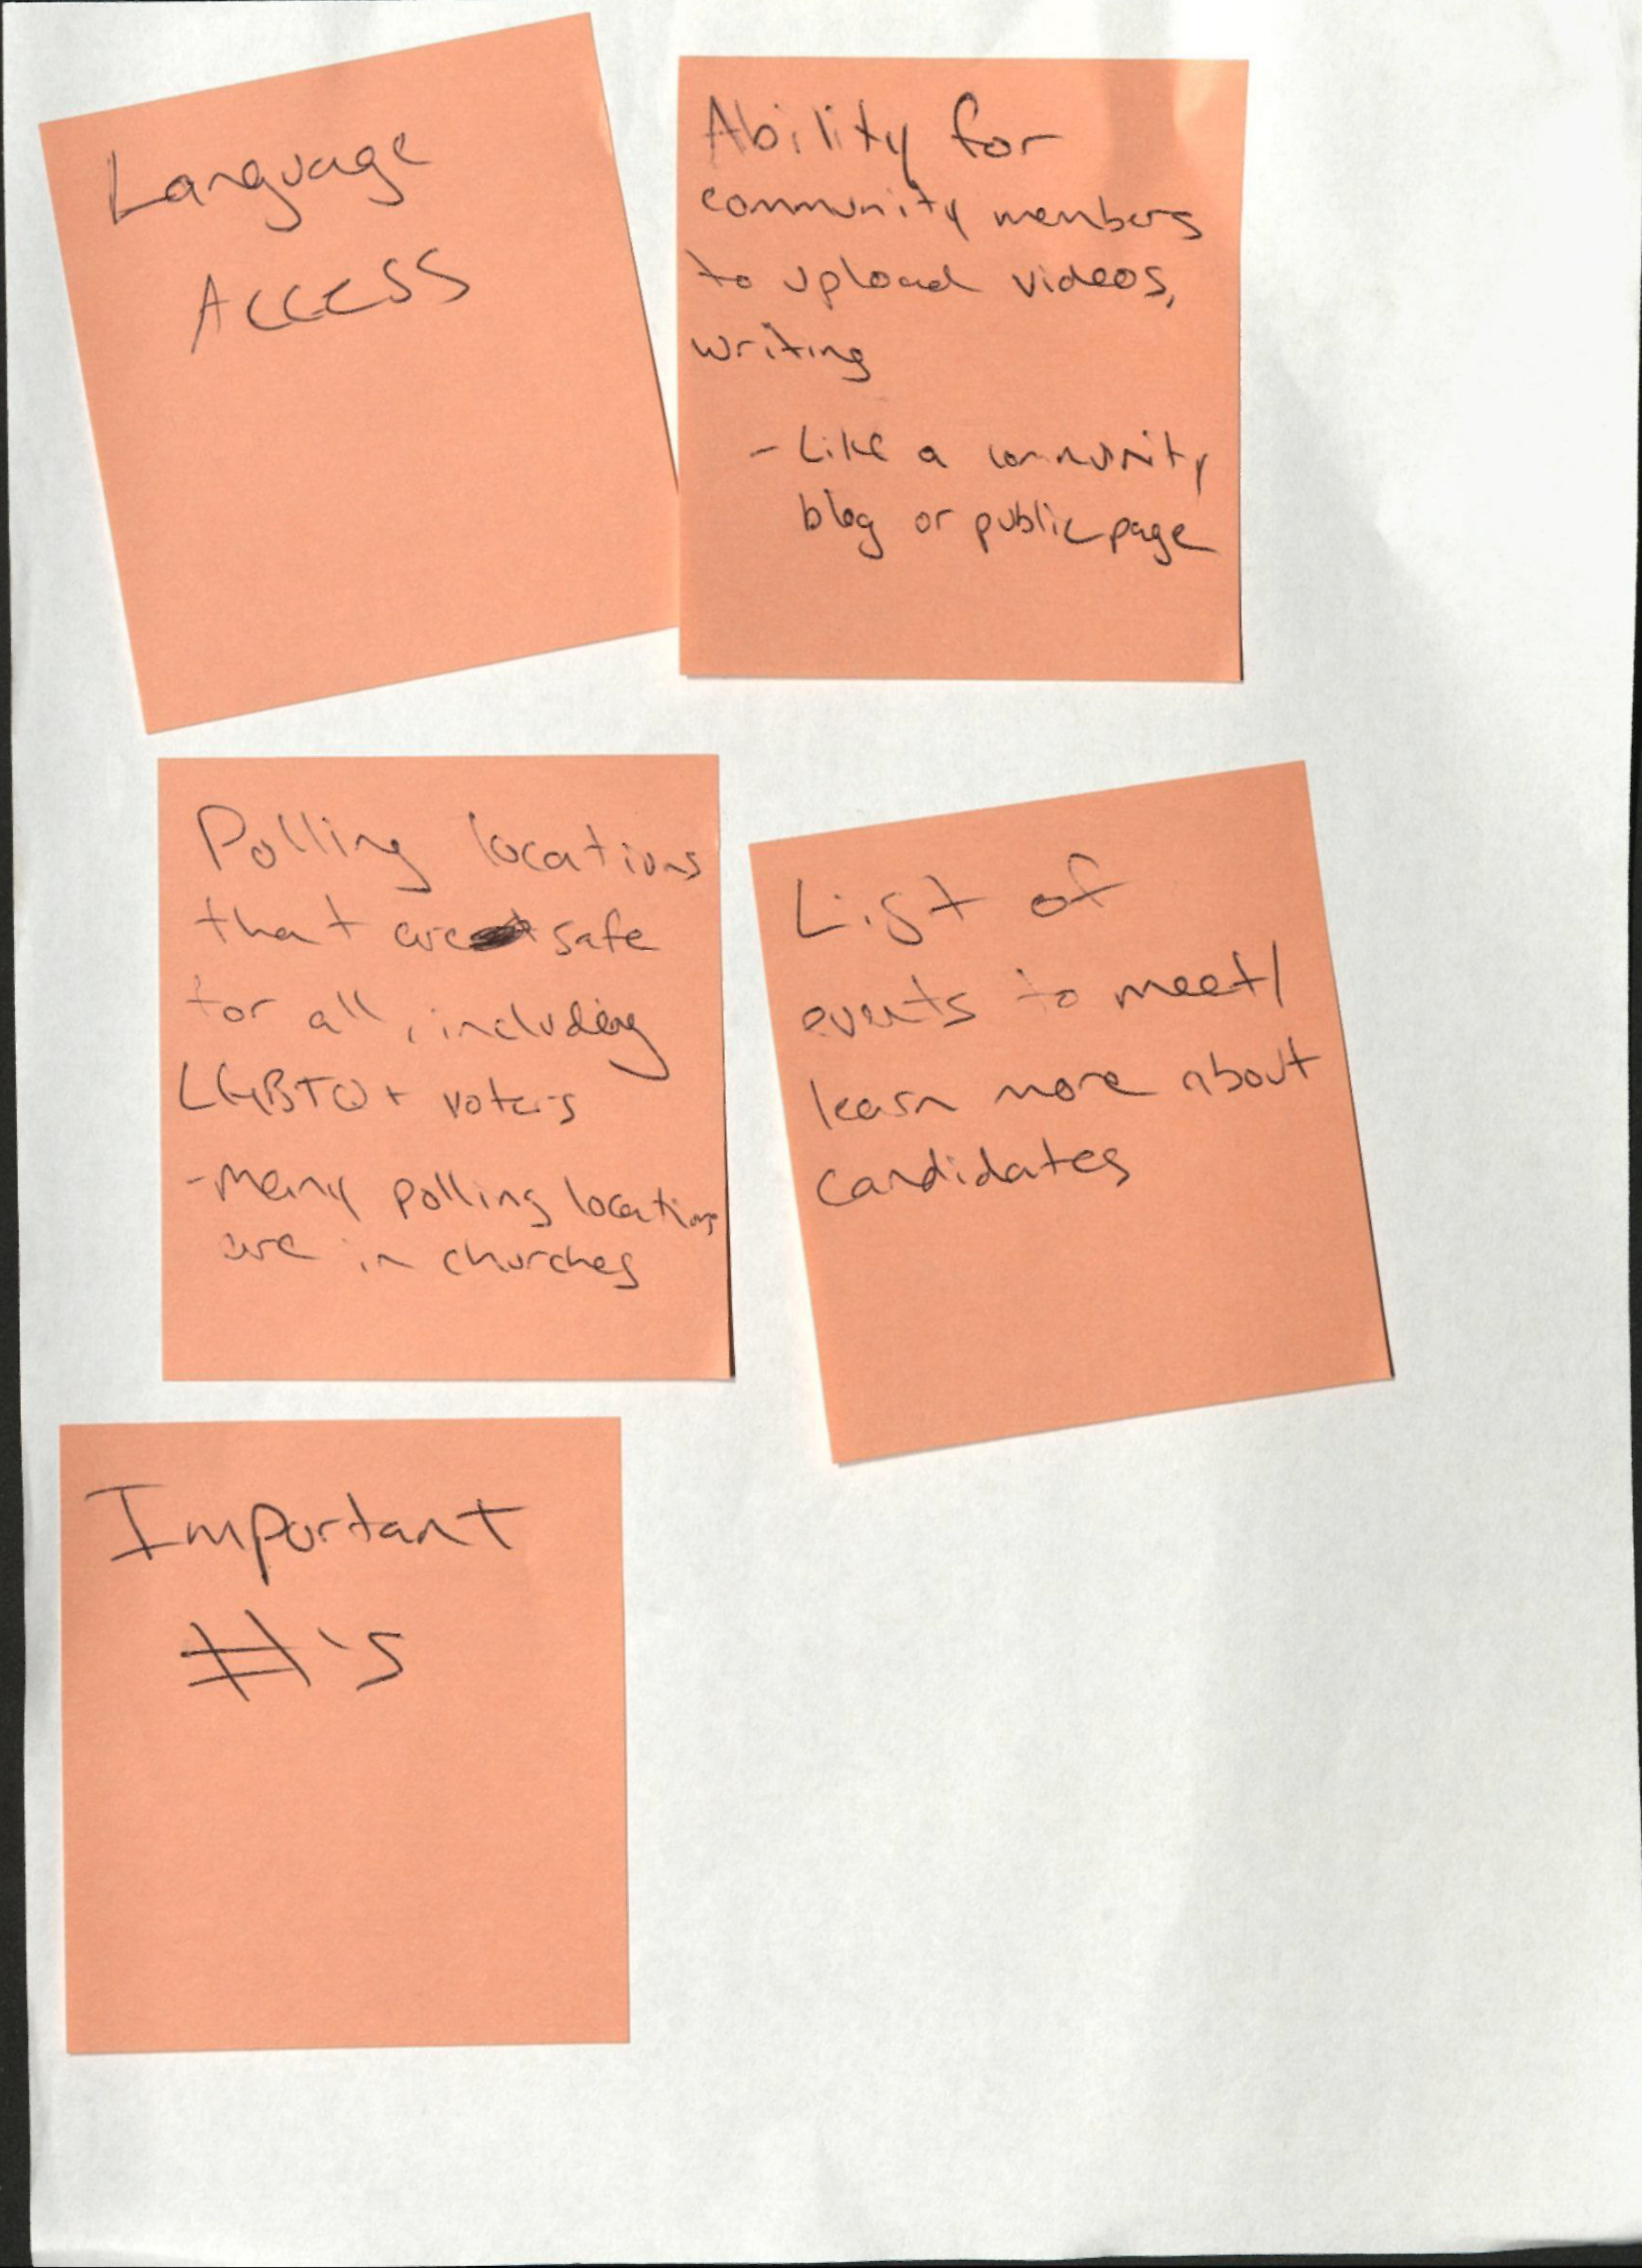 Language
Access
Ability for
community members
to upload videos,
writing
- Like a community
blog or public page
Polling locations
that are safe
for all, including
LGBTQ+ voters
- Many polling locations
are in churches
List of
events to meet/
learn more about
candidates
Important
#'s